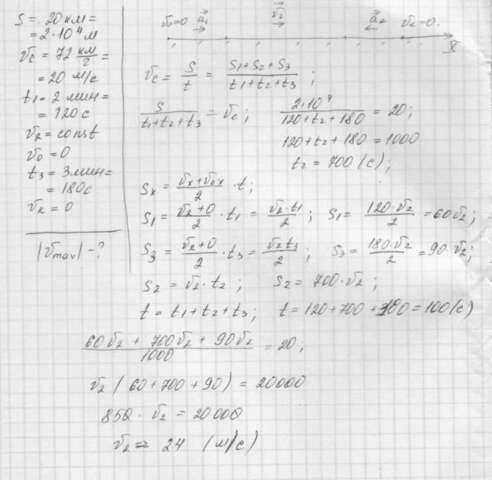 S = 20 км =
= 2·10⁴ м
v_c = 72 км/г =
= 20 м/с
t₁ = 2 мин =
= 120 с
v₂ = const
v₀ = 0
t₃ = 3 мин =
= 180 с
v_к = 0
|v_max| - ?
v₀=0 a₁ v₂ a₂ v_к=0
X
v_c = S/t = (S₁+S₂+S₃)/(t₁+t₂+t₃) ;
S/(t₁+t₂+t₃) = v_c ; 2·10⁴/(120+t₂+180) = 20;
120+t₂+180 = 1000
t₂ = 700 (с);
Sₓ = (vₓ+v₀ₓ)/2 · t;
S₁ = (v₂+0)/2 · t₁ = (v₂·t₁)/2 ; S₁ = (120·v₂)/2 = 60v₂;
S₃ = (v₂+0)/2 · t₃ = (v₂t₃)/2 ; S₃ = (180·v₂)/2 = 90 v₂;
S₂ = v₂·t₂ ; S₂ = 700·v₂;
t = t₁+t₂+t₃; t = 120+700+180 = 100(с)
(60v₂ + 700v₂ + 90v₂)/1000 = 20;
v₂ (60+700+90) = 20000
850 · v₂ = 20000
v₂ = 24 (м/с)